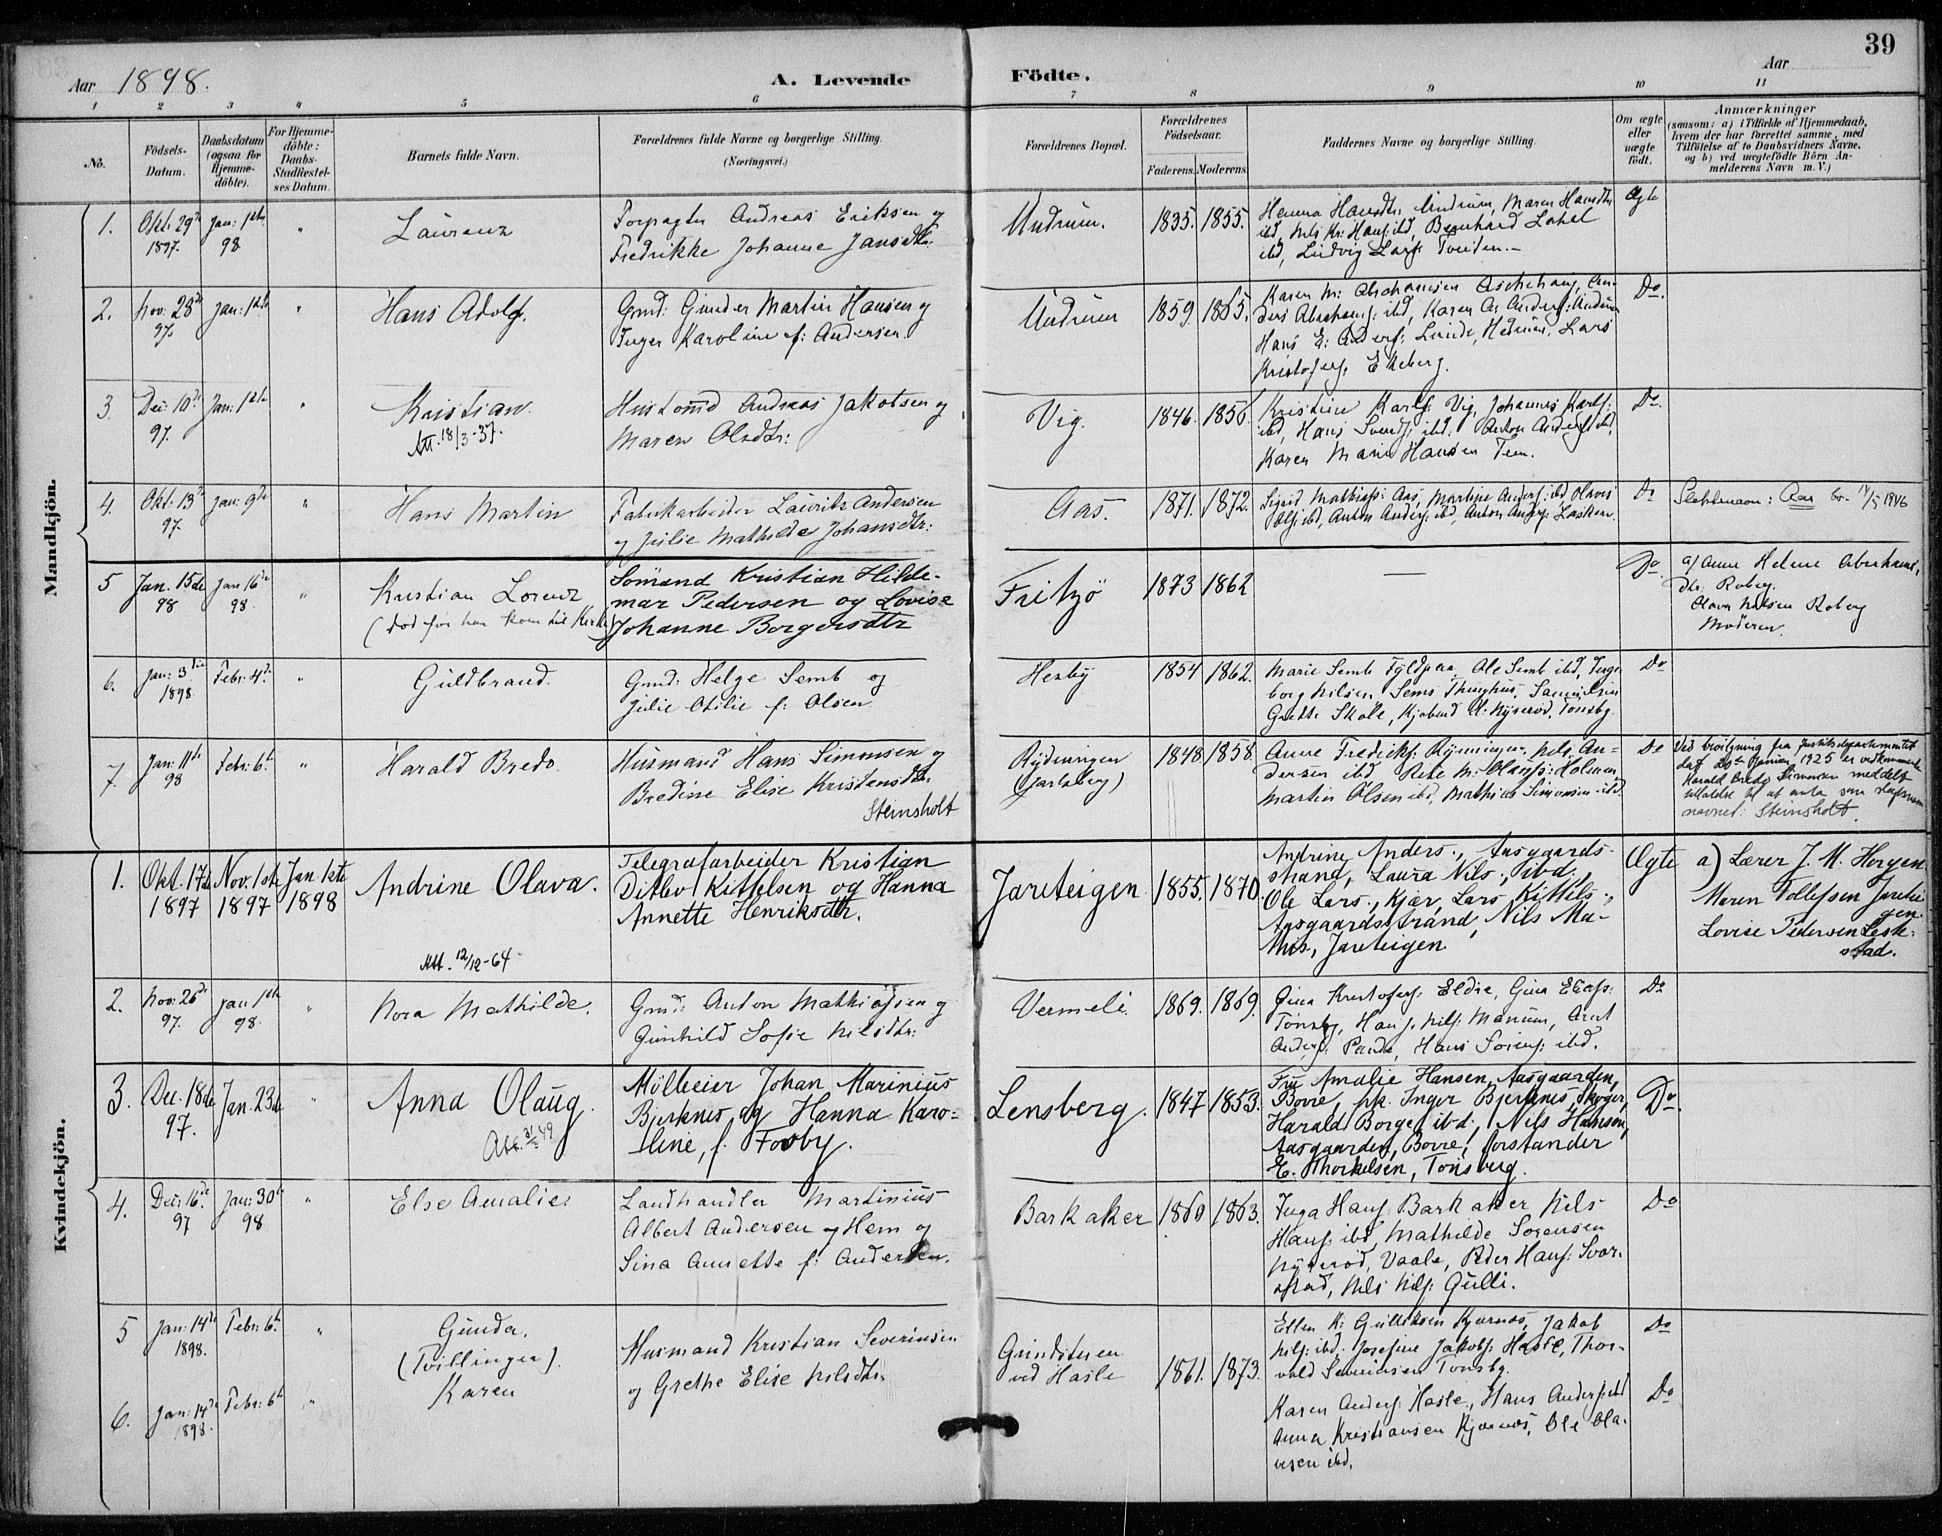 39
Aar 1898.
A. Levende
Födte.
Aar
1 2 3 4 5 6 7 8 9 10 11
No.
Födsels-
Datum.
Daabsdatum
(ogsaa for
Hjemme-
döbte).
For Hjemme-
döbte:
Daabs-
Stadfæstel-
ses Datum.
Barnets fulde Navn.
Forældrenes fulde Navne og borgerlige Stilling.
(Næringsvei.)
Forældrenes Bopæl.
Forældrenes
Födselsaar.
Faderens. Moderens.
Faddernes Navne og borgerlige Stilling.
Om ægte
eller
uægte
födt.
Anmærkninger
(saasom: a) i Tilfælde af Hjemmedaab,
hvem der har forrettet samme, med
Tilföielse af to Daabsvidners Navne,
og b) ved uægtefödte Börn An-
melderens Navn m. V.)
Mandkjön.
1.
Okt: 29de
1897.
Jan: 1ste
98
"
Laurenz
Forpagter Andreas Eriksen og
Fredrikke Johanne Jansdtr.
Undrum.
1835. 1855.
Henna Hansdtr. Undrum, Maren Hansdtr
ibd, Nils Kr: Hans: ibd, Bernhard
ibd, Ludvig Lars: Tveiten.-
Ægte
2.
Nov: 28de
97.
Jan: 1ste
"
Hans Adolf.
Gmd: Gunder Martin Hansen og
Inger Karoline f: Andersen.
Undrum
1859. 1865.
Karen M: Abrahamsen Aschehaug, An-
ders Abrahams: ibd, Karen A: Anders: Undrum
Hans E: Anders: Linde, Hedrum, Lars
Kristofers: Ekeberg.
Do.
3.
Dec: 10de
97.
Jan: 1ste
"
Kristian.
Att. 18/3-37.
Husmd Andreas Jakobsen og
Maren Olsdtr:
Vig.
1846. 1856.
Kristine Karls: Vig, Johannes Karls:
ibd, Hans Svends: ibd. Anton Anders: ibd,
Karen Marie Hansen Tem.
Do.
4.
Okt: 13de
97.
Jan: 9de
"
Hans Martin
Fabrikarbeider Lauritz Andersen
og Julie Mathilde Johansdtr:
Aas.
1871. 1872.
Sigrid Mathias: Aas, Martine Anders: ibd Olavus
Ols: ibd, Anton Anders: ibd, Anton Anders: Lasken.
Do
Slektsnavn: Aas br. 14/5 1946
5
Jan. 15de
98
Jan 16de
98.
"
Kristian Lorenz
(död för han kom til Kirke)
Sömand Kristian Hilde-
mar Pedersen og Lovise
Johanne Borgersdtr
Fritzö
1873 1862
—
Do
a) Anne Helene Abrahams-
dtr. Roberg.
Olava Nilsen Roberg
Moderen.
6.
Jan: 3die
1898.
Febr: 4de
"
Guldbrand.
Gmd: Helge Semb og
Julie Otilie f: Olsen
Hesby
1854 1862.
Marie Semb Fyldpaa, Ole Semb ibd, Inge-
borg Nilsen, Sems Thinghus,
Grette Skole, Nyseröd, Tönsbg.
Do
7.
Jan: 11te
98
Febr: 6te
"
Harald Bredo.
Husmand Hans Simonsen og
Bredine Elise Kristensdtr.
Steinsholt
Rydningen
(Jarlsberg)
1848 1858.
Anne Fredriks: Rydningen, Nils An-
dersen ibd M: Hans: Holmen
Martin Olsen ibd, Mathias Simonsen ibd
Do
Ved bevilgning fra Justitsdepartementet
dat. 20de Januar 1925 er vedkommende
Harald Bredo Simonsen meddelt
tilladelse til at anta som slegtsnavn
navnet: Steinsholt.
Kvindekjön.
1.
Okt. 17de
1897
Nov. 1ste
1897
Jan. 1ste
1898
Andrine Olava.
Att. 12/12-64
Telegrafarbeider Kristian
Ditlev Kittelsen og Hanna
Annette Henriksdtr.
Jareteigen
1855. 1870.
Andrine Anders., Aasgaards-
strand, Laura Nils., ibd.,
Ole Lars., Kjær, Lars Kittels.,
Aasgaardsstrand, Nils Ma-
this, Jareteigen
Ægte
a) Lærer J. M. Horgen
Maren Tollefsen Jaretei-
gen.
Lovise Pedersen Lesk-
stad.
2.
Nov: 26de
97.
Jan 1ste
98.
"
Nora Mathilde.
Gmd: Anton Mathiassen og
Gunhild Sofie Nilsdtr:
Vermeli.
1869. 1869.
Gina Kristofers: Eldre, Gina Elias:
Tönsbg, Hans: Nils: Manum, Arnt
Anders: Paude, Hans Sörens: ibd.
Do
3.
Dec. 18de
97.
Jan. 23de
"
Anna Olaug.
Att. 31/3 49
Mölleeier Johan Marinius
Bjerknes og Hanna Karo-
line, f. Fosby.
Lensberg.
1847 1853.
Fru Amalie Hansen, Aasgaarden,
Borre, pk. Inger Bjerknes, Skoger,
Harald Borge, ibd., Nils Hansen,
Aasgaarden, Borre, forstander
E. Thorkelsen, Tönsberg.
Do
4.
Dec: 16de
97
Jan: 30te
98.
"
Else Amalie.
Landhandler Martinius
Albert Andersen og Hem og
Sina Annette f: Andersen.
Barkaker
1860 1863.
Inga Hans: Barkaker Nils
Hans: ibd, Mathilde Sörensen
Nyseröd, Vaale, Peder Hans: Svar-
stad, Nils Nils: Gulli.
Do
5
Jan: 14de
1898.
Febr: 6te
"
Gunda.
(Tvillinger).
Karen
Husmand Kristian Severinsen
og Grethe Elise Nilsdtr.
Grindstuen
ved Hasle
1861. 1873.
Ellen K: Gulliksen Kjærnæs, Jakob
Nils: ibd. Josefine Jakobs: Hasle, Thor-
vald Severinsen Tönsbg.
Do
6.
Jan: 14de
1898.
Febr: 6te
"
Karen Anders: Hasle, Hans Anders: ibd
Anna Kristiansen Kjærnæs, Ole Ola-
vesen ibd.
Do